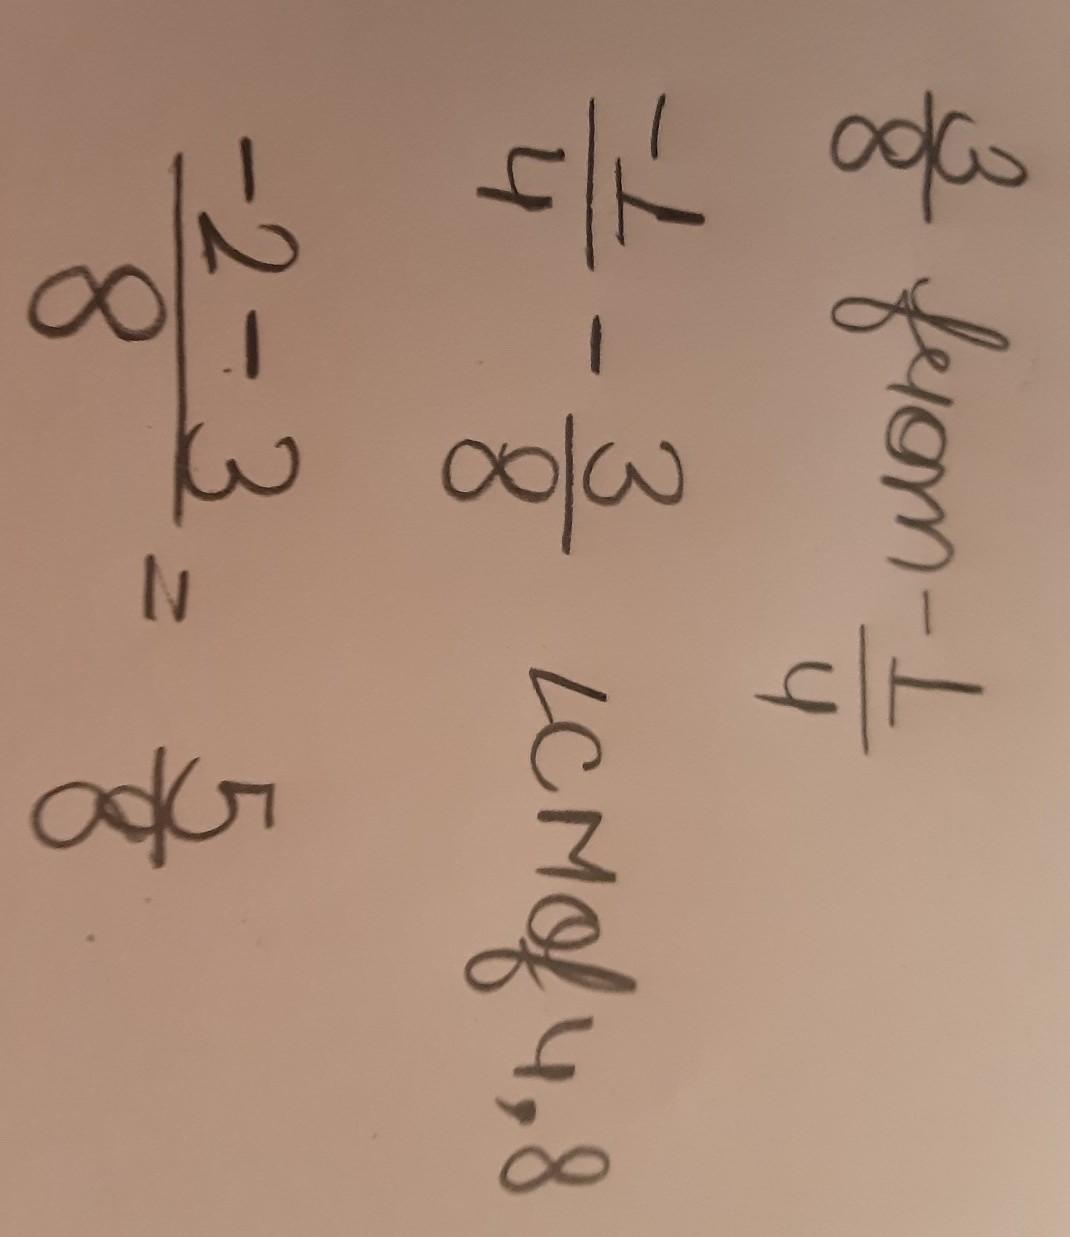 3/8 from -1/4
-1/4 - 3/8 LCM of 4,8
-2-3/8 = 5/8